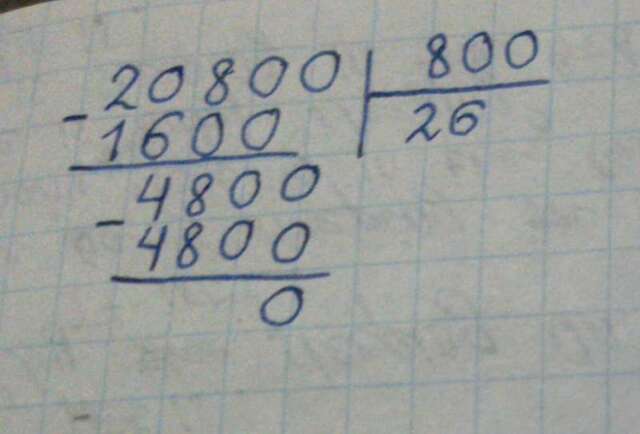 20800 800
- 1600 26
4800
- 4800
0